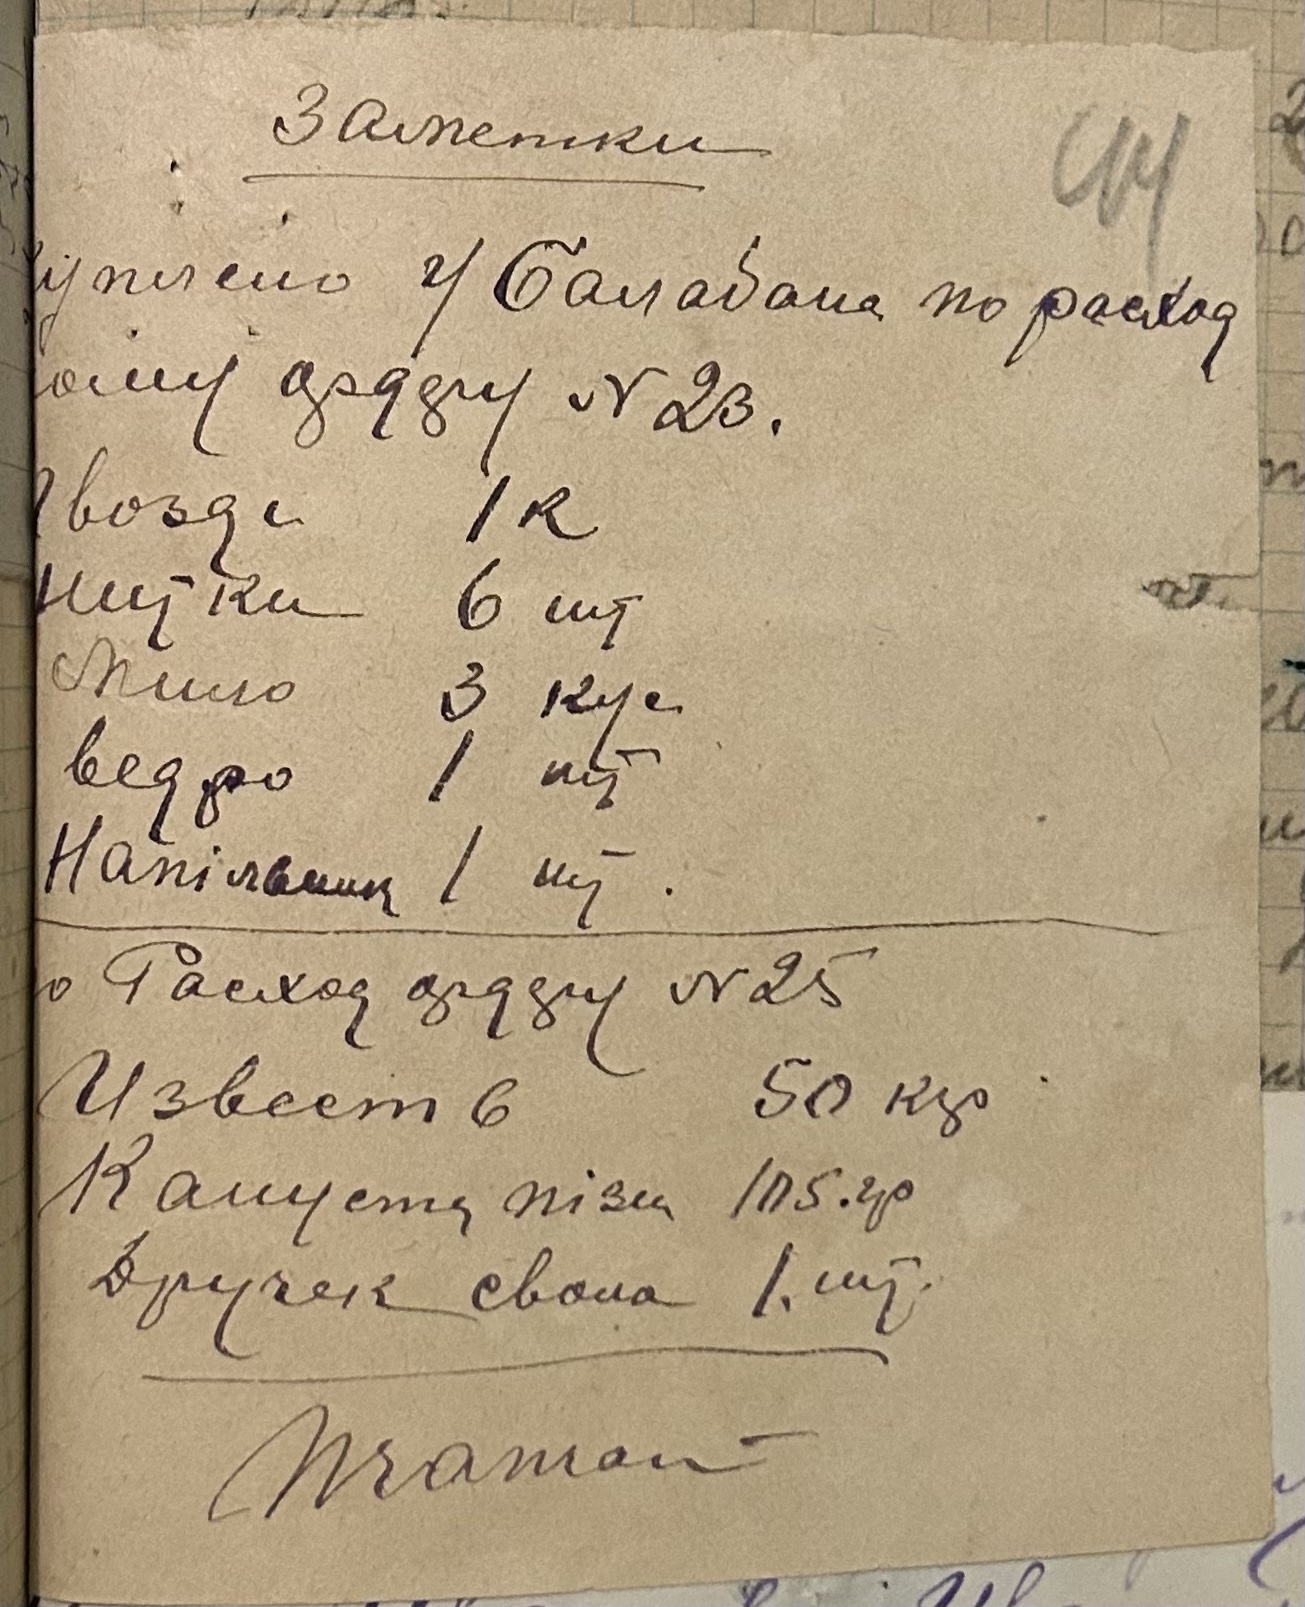 Заметки
44
уплено у Балабана по расход
ому ордеру N 23.
Гвозди 1 к
Нитки 6 шт
Мило 3 кус
ведро 1 шт
Напільник 1 шт.
о Расход ордеру N 25
Известь 50 кгр
Капуста пізня
Бручек свола 1. шт.